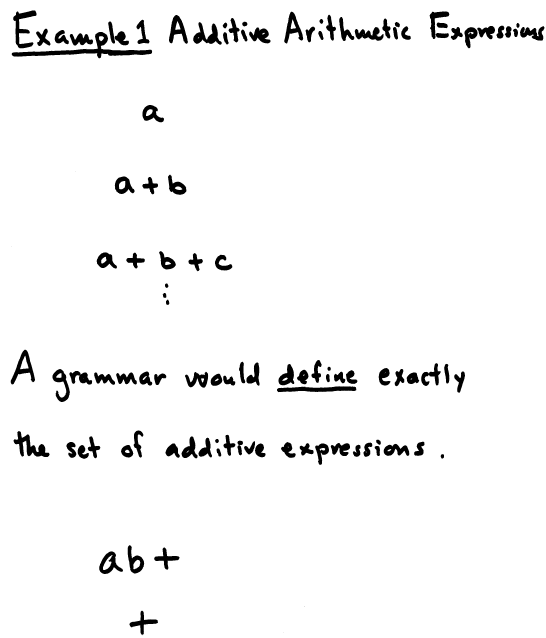 Example 1 Additive Arithmetic Expressions
a
a + b
a + b + c
⋮
A grammar would define exactly
the set of additive expressions.
ab+
+